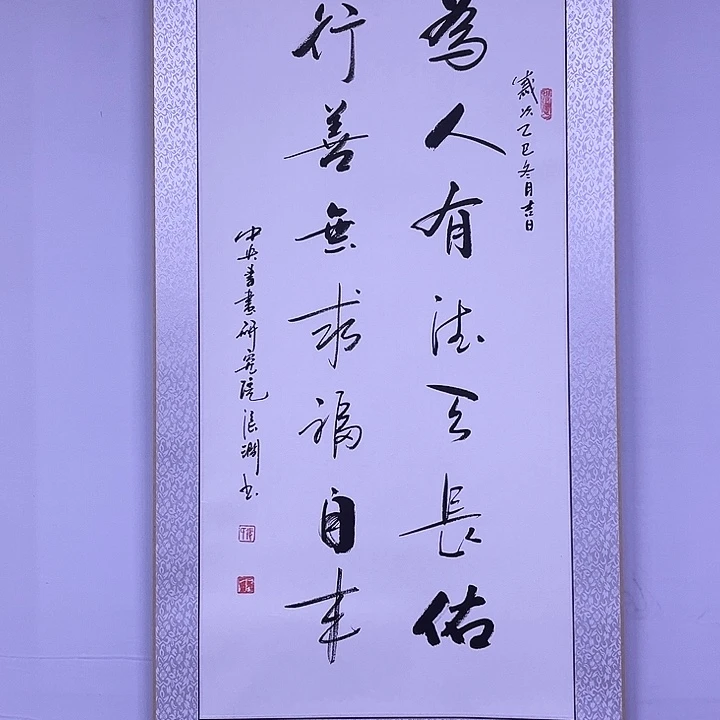 歲次乙巳冬月吉日
為人有德天長佑
行善無求福自来
中央書畫研究院張淵書